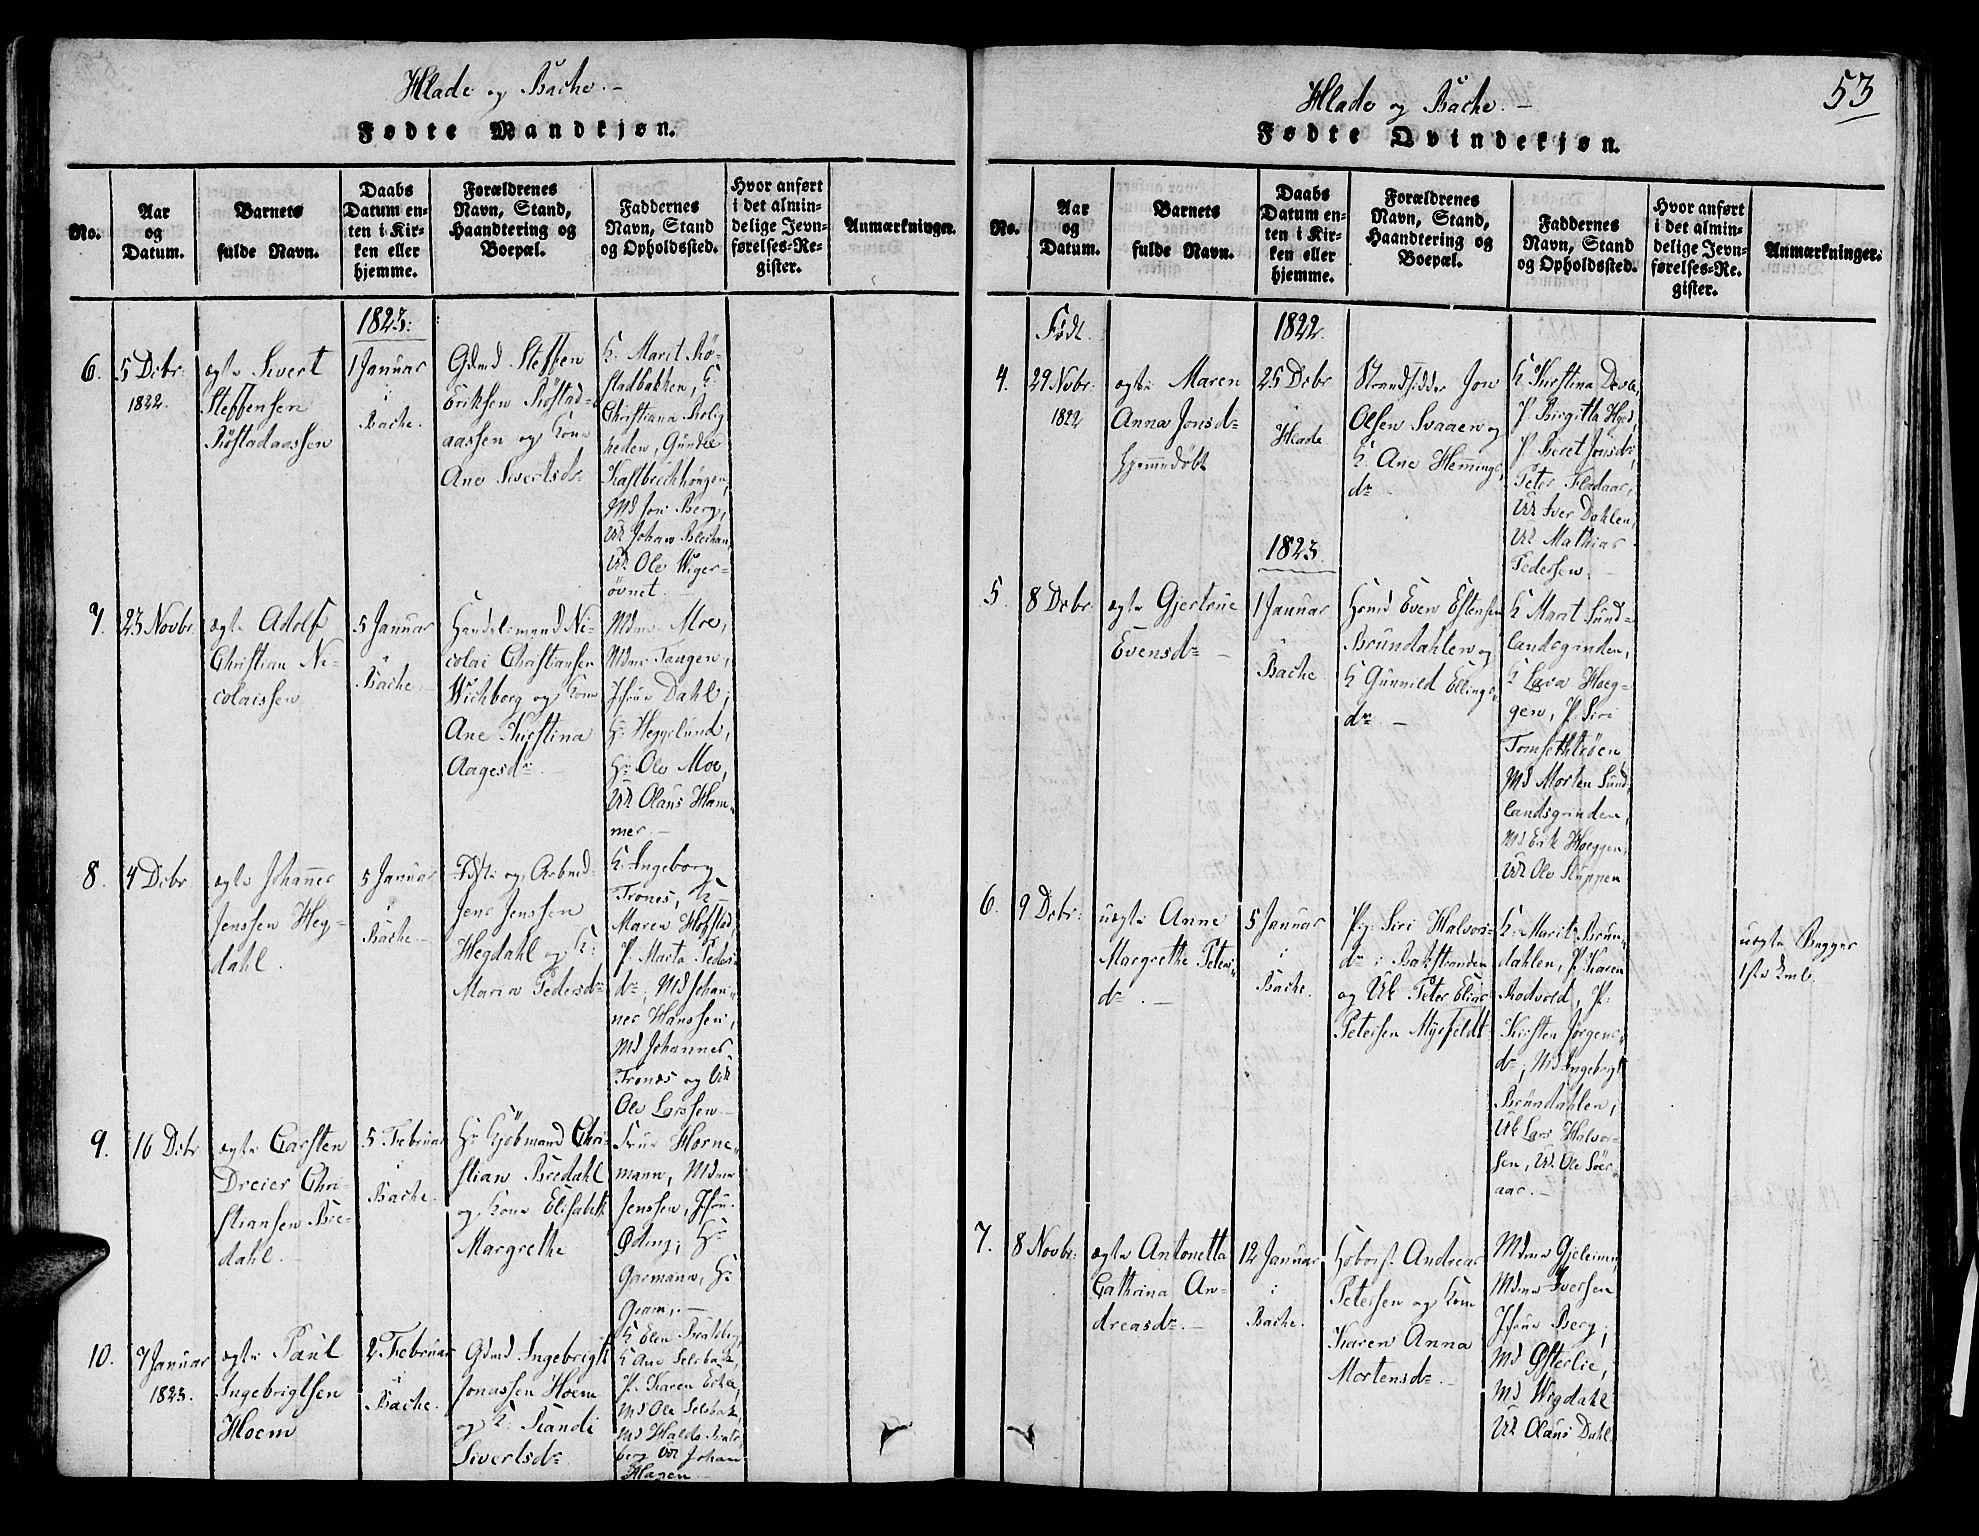 Hlade og Bache.
Fødte Mandkjøn.
No.
Aar
og
Datum.
Barnets
fulde Navn.
Daabs
Datum en-
ten i Kir-
ken eller
hjemme.
Forældrenes
Navn, Stand,
Haandtering og
Boepæl.
Faddernes
Navn, Stand
og Opholdssted.
Hvor anført
i det almin-
delige Jevn-
førelses-Re-
gister.
Anmærkninger.
1823.
6.
5 Decbr:
1822.
ægte Sivert
Steffensen
Røstadaassen
1 Januar
i
Bache.
Gdmd Steffen
Eriksen Røstad-
aassen og Kone
Ane Sivertsdr
K. Marit Rø-
stadbakken, K:
Christiana Rolig
heden, Gundee
Md Jon Berg,
UK Johan
UK Ole Wiger-
øvnet.
7.
23 Novbr.
ægte Adolf
Christian Ni-
colaissen
5 Januar
i
Bache.
Handelsmand Ni-
colai Christiansen
Wichborg og Kone
Ane Kirstina
Aagesdr.
Mdme Moe,
Mdme Tangen,
Jfrue Dahl,
Hr Heggelund,
Hr Ole Moe,
UK Olaus Ham-
mer.
8.
4 Decbr
ægte Johannes
Jenssen Heg-
dahl.
5 Januar
i
Bache.
og Arbmd:
Jens Jenssen
Hegdahl og K:
Maria Pedersdr
K. Ingeborg
Trones, K.
Maren Hofstad,
P. Marta Peders-
dr, Md Johan-
nes Hanssen,
Md Johannes
Trones og UK
Ole Larssen.
9.
16 Decbr
ægte Carsten
Dreier Chri-
stiansen Bre-
dahl.
5 Februar
i
Bache.
Hr Kjøbmand Chri-
stian Bredahl
og Kone Elisabeth
Margrethe
Frue Horne-
mann, Mdme
Jenssen, Jfrue
Øding, Hr
Garmann, Hr
Gram,
10.
7 Januar
1823.
ægte Paul
Ingebrigtsen
Hoem
2 Februar
i
Bache.
Gdmd Ingebrigt
Jonassen Hoem
og K. Randi
Sivertsdr
K Elen Bratsberg,
K Ane Selsbak,
P. Karen
Md Ole Selsbak,
Md Haldo Brats-
berg UK Johan
Hagen
53
Hlade og Bache.
Fødte Qvindekjøn.
No.
Aar
og
Datum.
Barnets
fulde Navn.
Daabs
Datum en-
ten i Kir-
ken eller
hjemme.
Forældrenes
Navn, Stand,
Haandtering og
Boepæl.
Faddernes
Navn, Stand
og Opholdssted.
Hvor anført
i det almin-
delige Jevn-
førelses-Re-
gister.
Anmærkninger.
Født.
1822.
4.
29 Novbr.
1822
ægte Maren
Anna Jonsdr
hjemmedøbt
25 Decbr
i
Hlade
Strandsidder Jon
Olsen Svaaen og
K. Ane Hemmings-
dr
K Kirstina Devle,
P. Birgitta
P. Beret Jonsdr,
Peter Fladaas,
UK Iver Dahlen,
UK Mathias
Pedersen.
1823.
5.
8 Decbr.
ægte Gjertrue
Evensdr
1 Januar
i
Bache
Hmd Even Estensen
Brundahlen og
K Gunnild Ellings-
dr
K Marit Sund-
landsgrinden,
K Lava Hoeg-
gen, P. Siri
Tomsethrøen
Md Morten Sund-
landsgrinden,
Md Erik Hoeggen,
UK Ole Sluppen
6.
9 Decbr.
uægte Anne
Margrethe Peters-
dr.
5 Januar
i
Bache.
Pig. Siri Halvors-
dr i Bakstranden
og Uk Peter Elias
Petersen Myrfeldt
K. Marit Brun-
dahlen, P. Karen
Rodvold, P.
Kirsten Jørgens-
dr, Md Ingebrigt
Brundahlen,
UK Lars Halvor-
sen, UK Ole Søer-
aas.
uægte Begges
1ste Lmb.
7.
8 Novbr.
ægte Antonetta
Cathrina An-
dreasdr.
12 Januar
i
Bache.
Hoboist Andreas
Petersen og Kone
Karen Anna
Mortensdr.
Mdme
Mdme Iversen
Jfrue Berg,
Md Østerlie,
Md Wigdahl
UK Olaus Dahl.